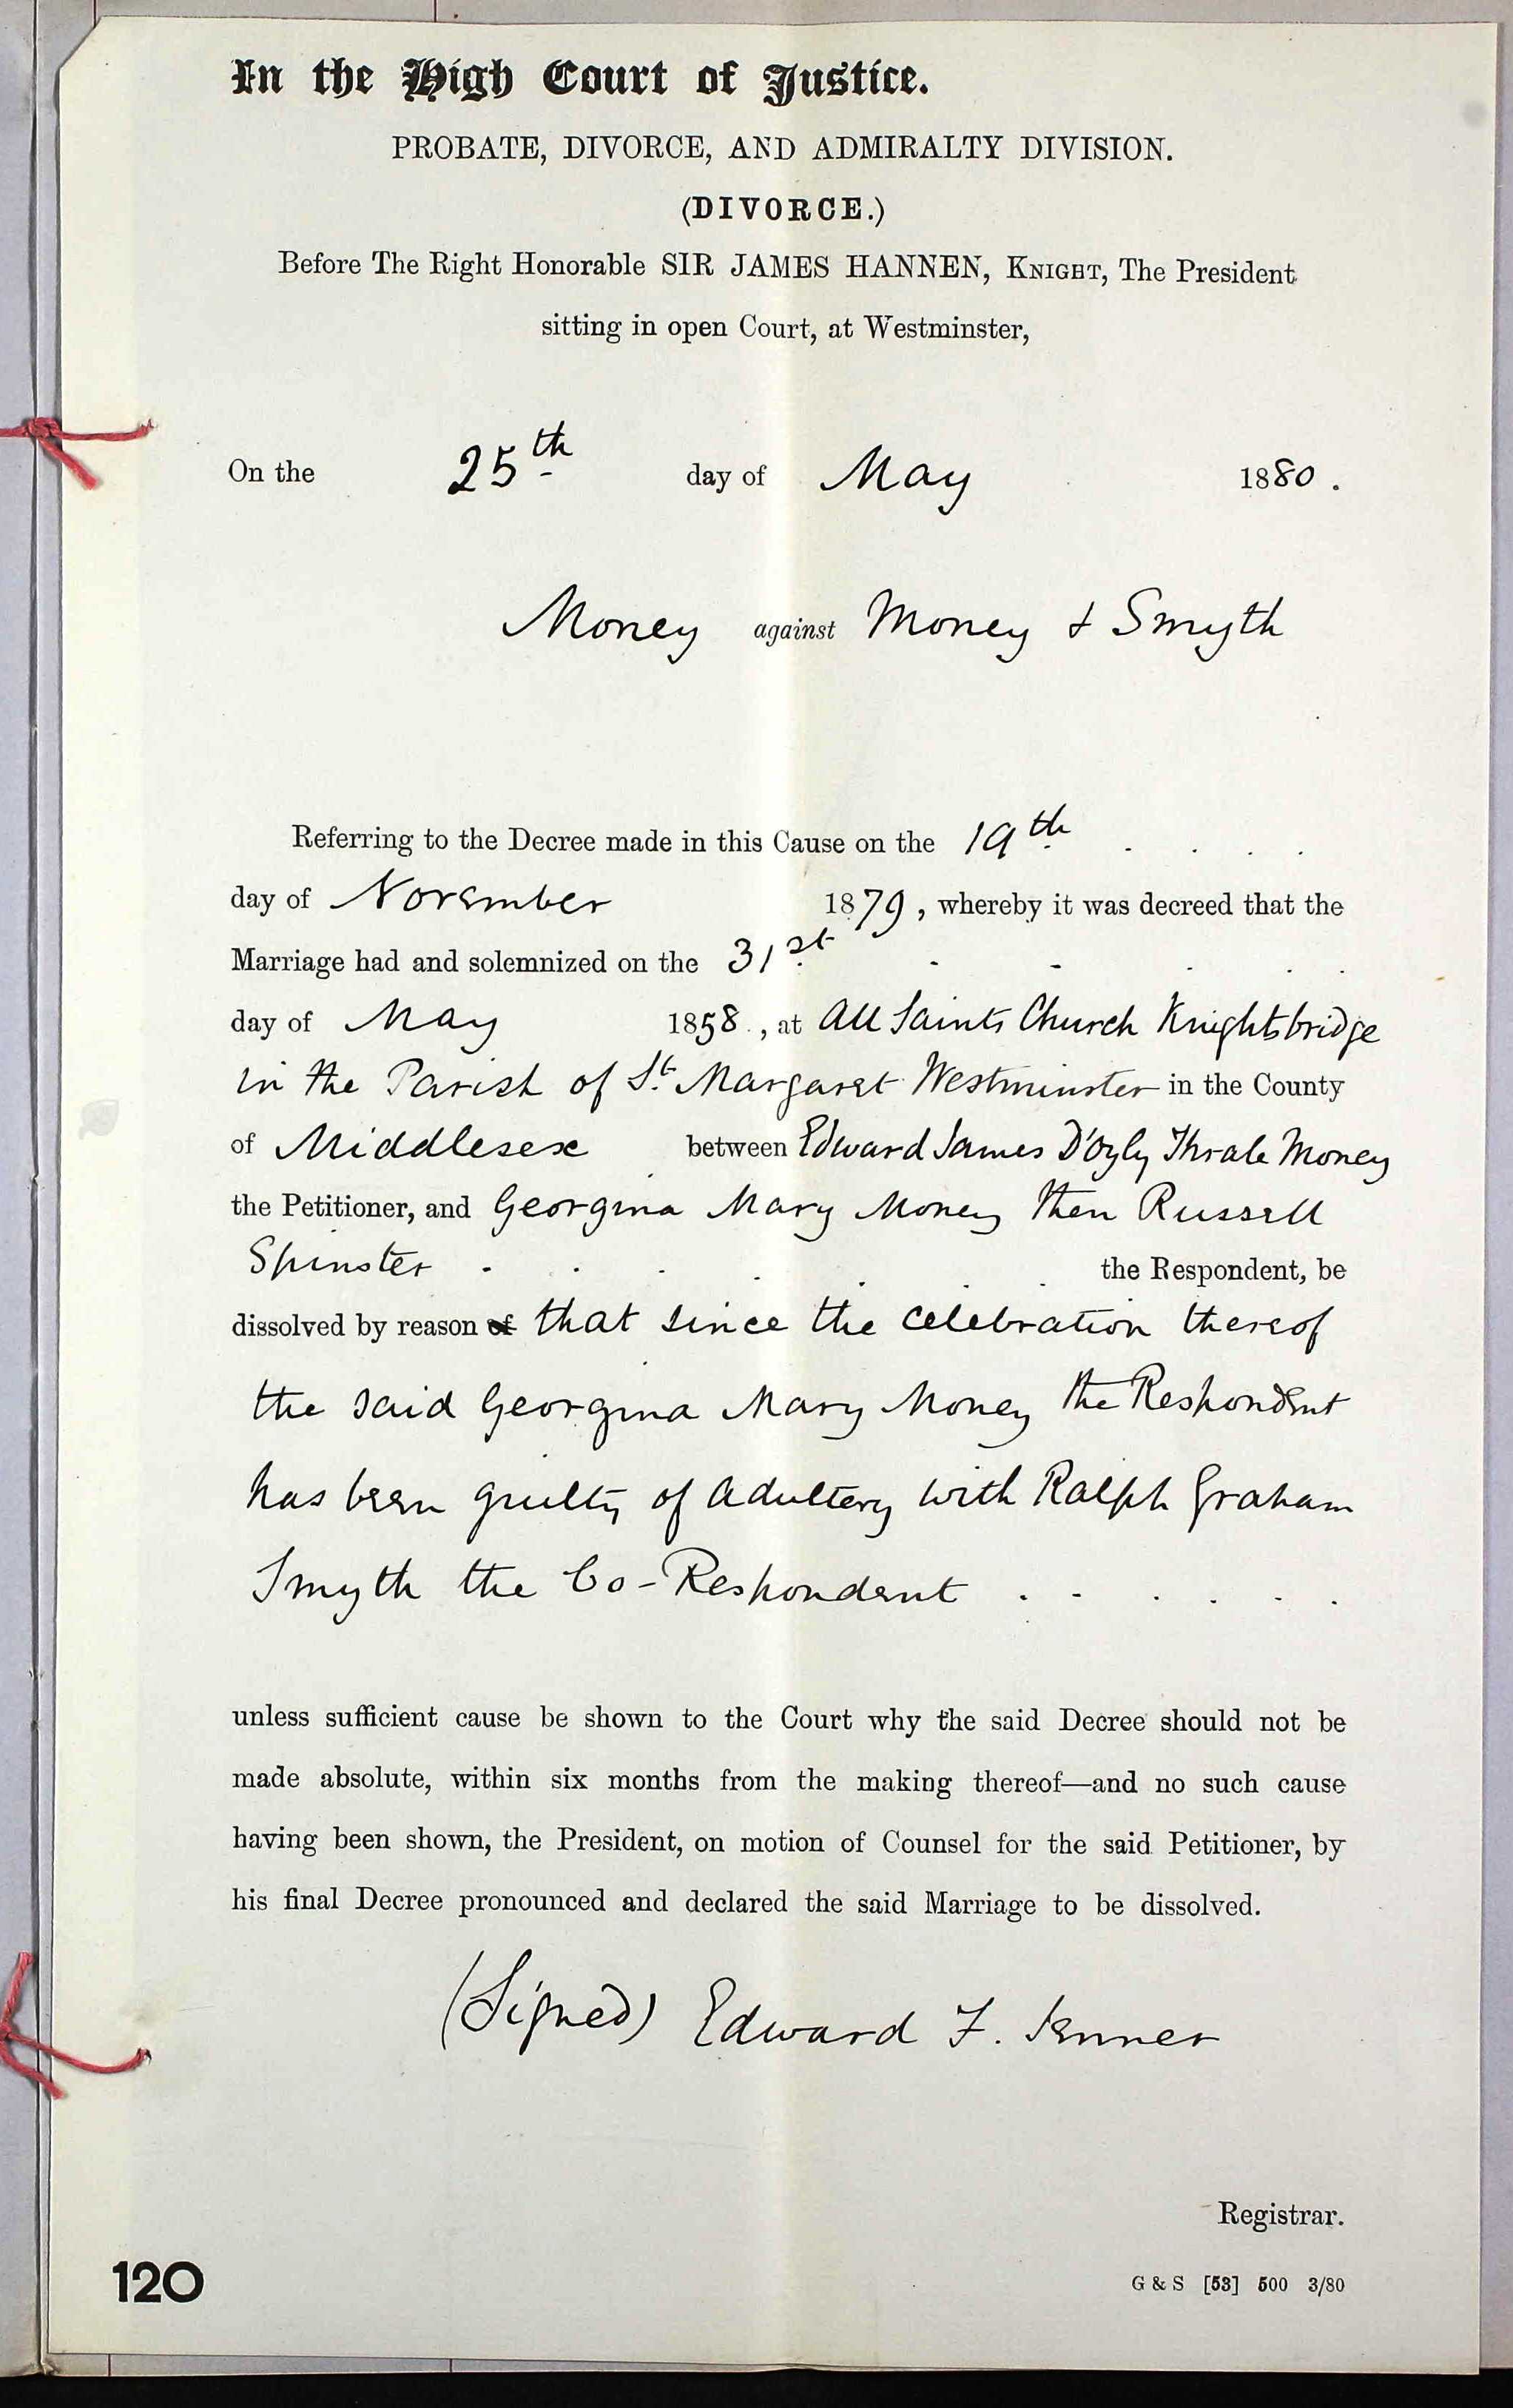 In the High Court of Justice.
PROBATE, DIVORCE, AND ADMIRALTY DIVISION.
(DIVORCE.)
Before The Right Honorable SIR JAMES HANNEN, KNIGHT, The President
sitting in open Court, at Westminster,
On the 25th day of May 1880.
Money against Money & Smyth
Referring to the Decree made in this Cause on the 19th
day of November 1879, whereby it was decreed that the
Marriage had and solemnized on the 31st
day of May 1858, at All Saints Church Knightsbridge
in the Parish of St. Margaret Westminster in the County
of Middlesex between Edward James D'Oyly Thrale Money
the Petitioner, and Georgina Mary Money then Russell
Spinster the Respondent, be
dissolved by reason of that since the celebration thereof
the said Georgina Mary Money the Respondent
has been guilty of adultery with Ralph Graham
Smyth the Co-Respondent
unless sufficient cause be shown to the Court why the said Decree should not be
made absolute, within six months from the making thereof—and no such cause
having been shown, the President, on motion of Counsel for the said Petitioner, by
his final Decree pronounced and declared the said Marriage to be dissolved.
(Signed) Edward F. Jenner
Registrar.
120
G & S [53] 500 3/80